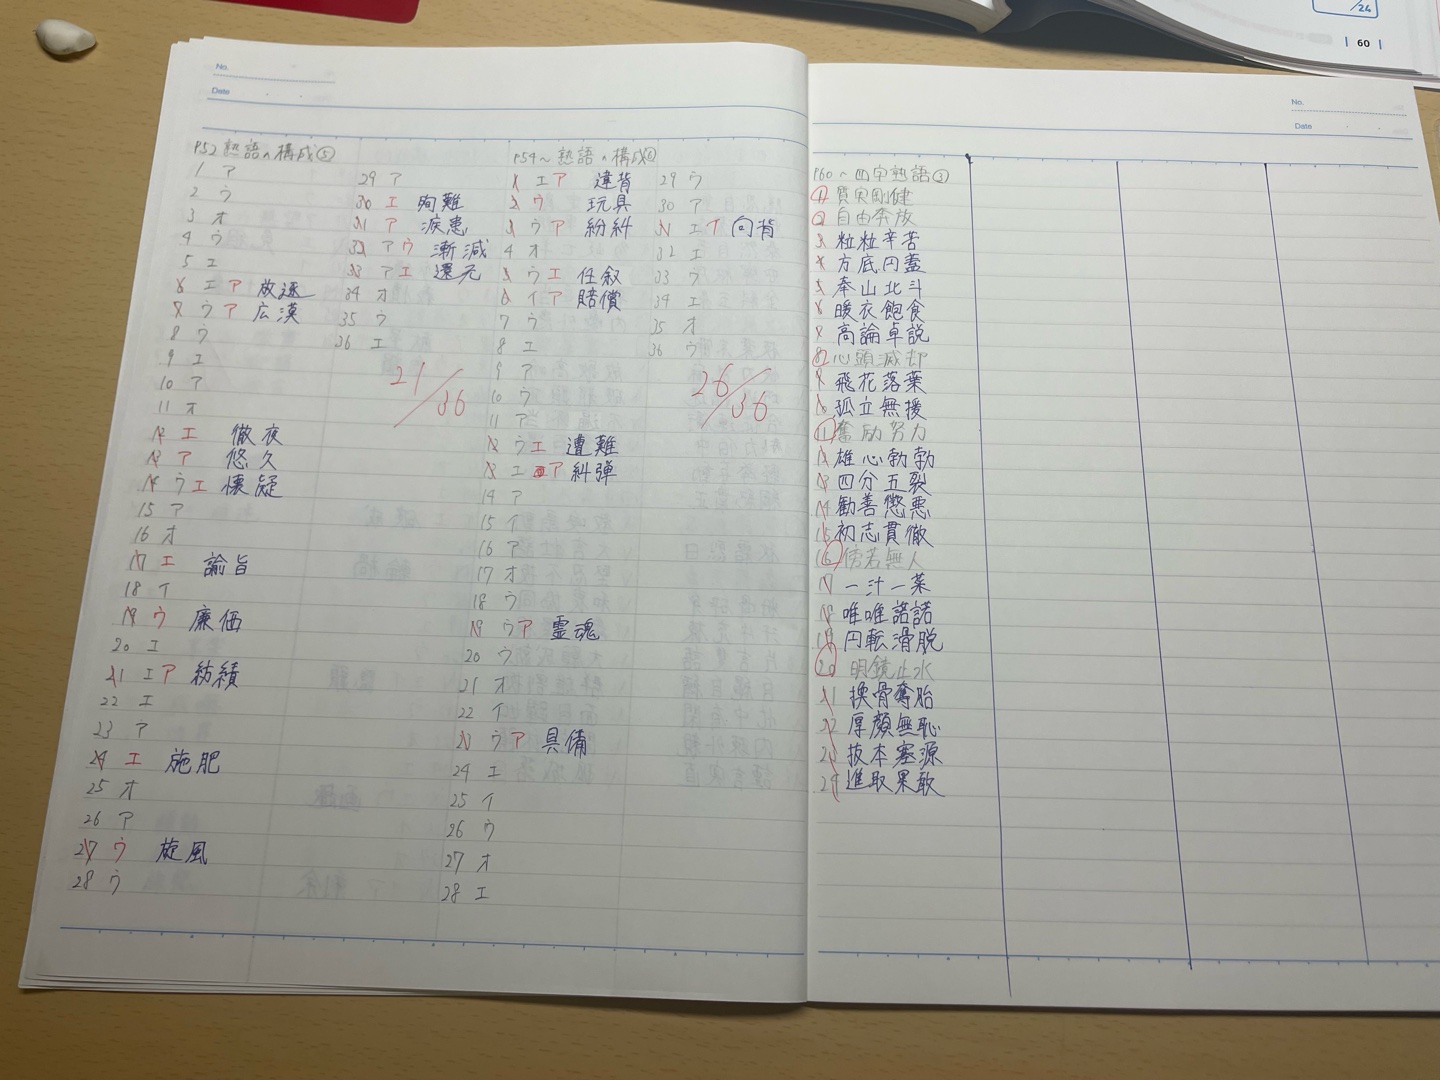 /24
60
No.
Date
P52 熟語の構成⑤
1 ア
2 ウ
3 オ
4 ウ
5 エ
6 エ ア 放逐
7 ウ ア 広漠
8 ウ
9 エ
10 ア
11 オ
12 エ 徹夜
13 ア 悠久
14 ウ エ 懐疑
15 ア
16 オ
17 エ 諭旨
18 イ
19 ウ 廉価
20 エ
21 エ ア 紡績
22 エ
23 ア
24 エ 施肥
25 オ
26 ア
27 ウ 旋風
28 ウ
29 ア
30 エ 殉難
31 ア 疾患
32 ア ウ 漸減
33 ア エ 還元
34 オ
35 ウ
36 エ
21/36
P54〜 熟語の構成⑥
1 エ ア 違背
2 ウ 玩具
3 ウ ア 紛糾
4 オ
5 ウ エ 任叙
6 イ ア 賠償
7 ウ
8 エ
9 ア
10 ウ
11 ア
12 ウ エ 遭難
13 エ ア 糾弾
14 ア
15 イ
16 ア
17 オ
18 ウ
19 ウ ア 霊魂
20 ウ
21 オ
22 イ
23 ウ ア 具備
24 エ
25 イ
26 ウ
27 オ
28 エ
29 ウ
30 ア
31 エ イ 向背
32 エ
33 ウ
34 エ
35 オ
36 ウ
26/36
No.
Date
P60〜 四字熟語③
1 質実剛健
2 自由奔放
3 粒粒辛苦
4 方底円蓋
5 泰山北斗
6 暖衣飽食
7 高論卓説
8 心頭滅却
9 飛花落葉
10 孤立無援
11 奮励努力
12 雄心勃勃
13 四分五裂
14 勧善懲悪
15 初志貫徹
16 傍若無人
17 一汁一菜
18 唯唯諾諾
19 円転滑脱
20 明鏡止水
21 換骨奪胎
22 厚顔無恥
23 抜本塞源
24 進取果敢